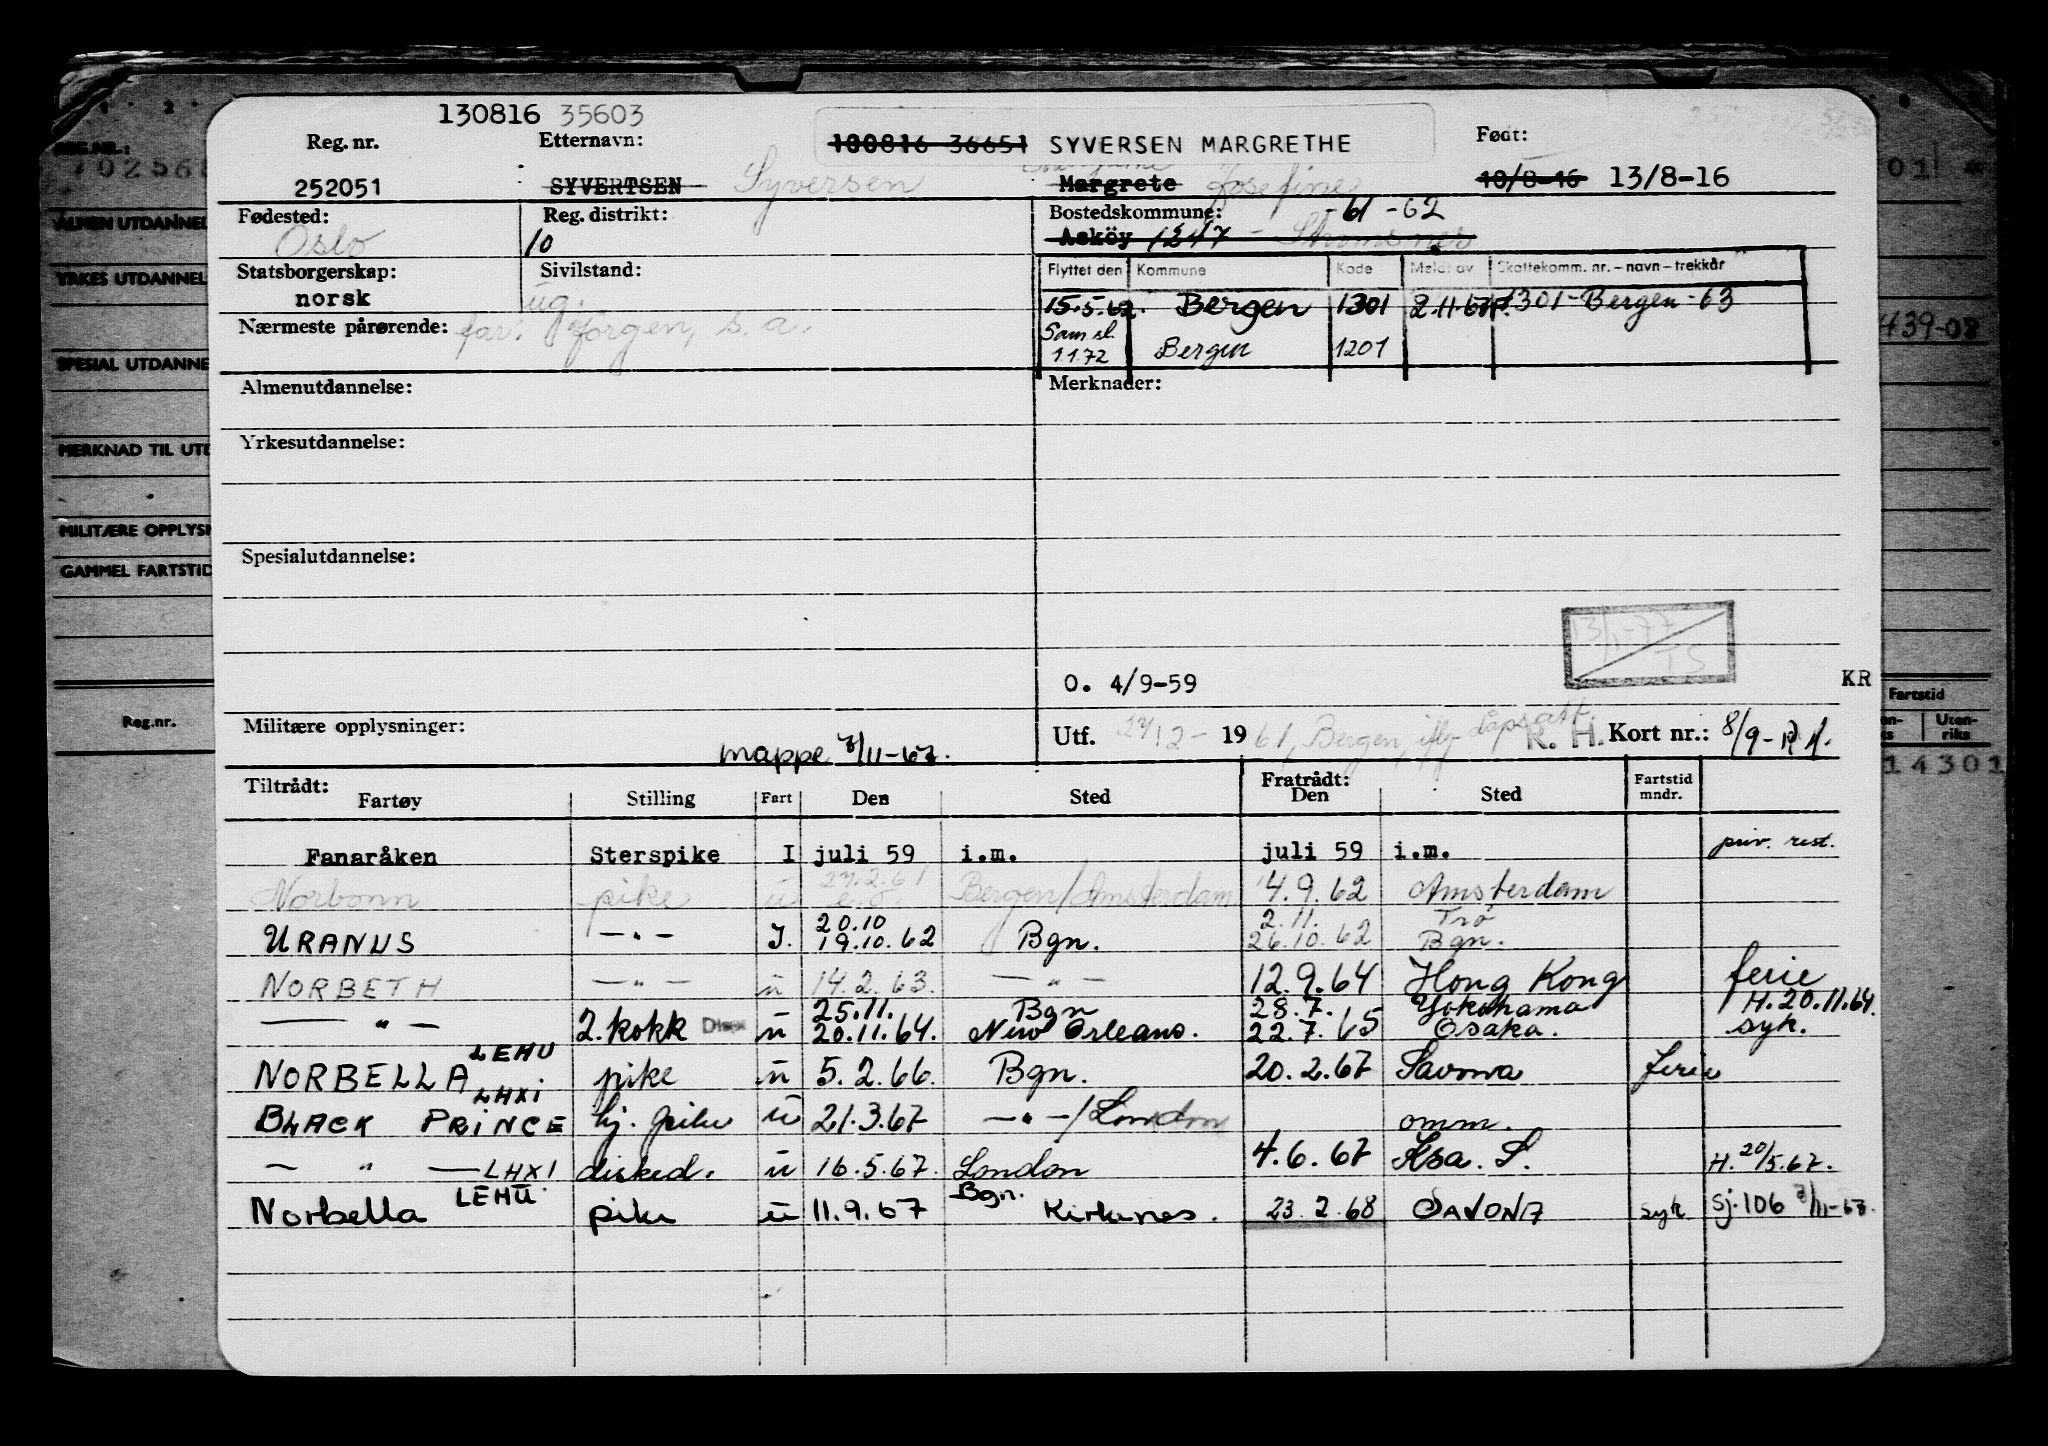 130816 35603
Reg. nr. Etternavn: 100816 36651 SYVERSEN MARGRETHE Født:
252051 SYVERTSEN Syversen Margrete Josefine 10/8-16 13/8-16
Fødested: Reg. distrikt: Bostedskommune: -61 -62
Oslo 10 Asköy 1247 - Stromsnes
Statsborgerskap: Sivilstand: Flyttet den Kommune Kode Meldt av Skattekomm. nr. - navn - trekkår
norsk ug. 15.5.62. Bergen 1301 2.11.67 1301-Bergen-63
Nærmeste pårørende: far: Jörgen, s.a. Sam sl.
1172 Bergen 1201
Almenutdannelse: Merknader:
Yrkesutdannelse:
Spesialutdannelse:
13/1-77
TS
O. 4/9-59 KR
Militære opplysninger: Utf. 1961, Bergen, R. H. Kort nr.: 8/9-
mappe 7/11-67.
Tiltrådt: Fratrådt: Fartstid
Fartøy Stilling Fart Den Sted Den Sted mndr.
Fanaråken Sterspike I juli 59 i.m. juli 59 i.m. priv. rest.
27.2.61
Norbonn pike u Bergen/Amsterdam 4.9.62 Amsterdam
20.10 2.11. Trö
URANUS -"- I. 19.10.62 Bgn. 26.10.62 Bgn.
NORBETH -"- u 14.2.63. -"- 12.9.64 Hong Kong ferie
25.11. Bgn 28.7. Yokohama H. 20.11.64.
-"- 2. kokk u 20.11.64. New Orleans. 22.7.65 Osaka. syk.
LEHU
NORBELLA pike u 5.2.66. Bgn. 20.2.67 Savona ferie
LHXI
BLACK PRINCE hj. pike u 21.3.67 -"-/London omm.
-"- LHXI disked. u 16.5.67. London 4.6.67 Ksa. S. H. 20/5.67.
LEHU. Bgn.
Norbella pike u 11.9.67 Kirkenes. 23.2.68 SAVONA syk sj. 106 7/11-67.
REG.NR.:
ALMEN UTDANNEL
YRKES UTDANNEL
SPESIAL UTDANNE
MERKNAD TIL UTD
MILITÆRE OPPLYSN
GAMMEL FARTSTID
Reg.nr.
439-02
Fartstid
Uten-
riks
14301